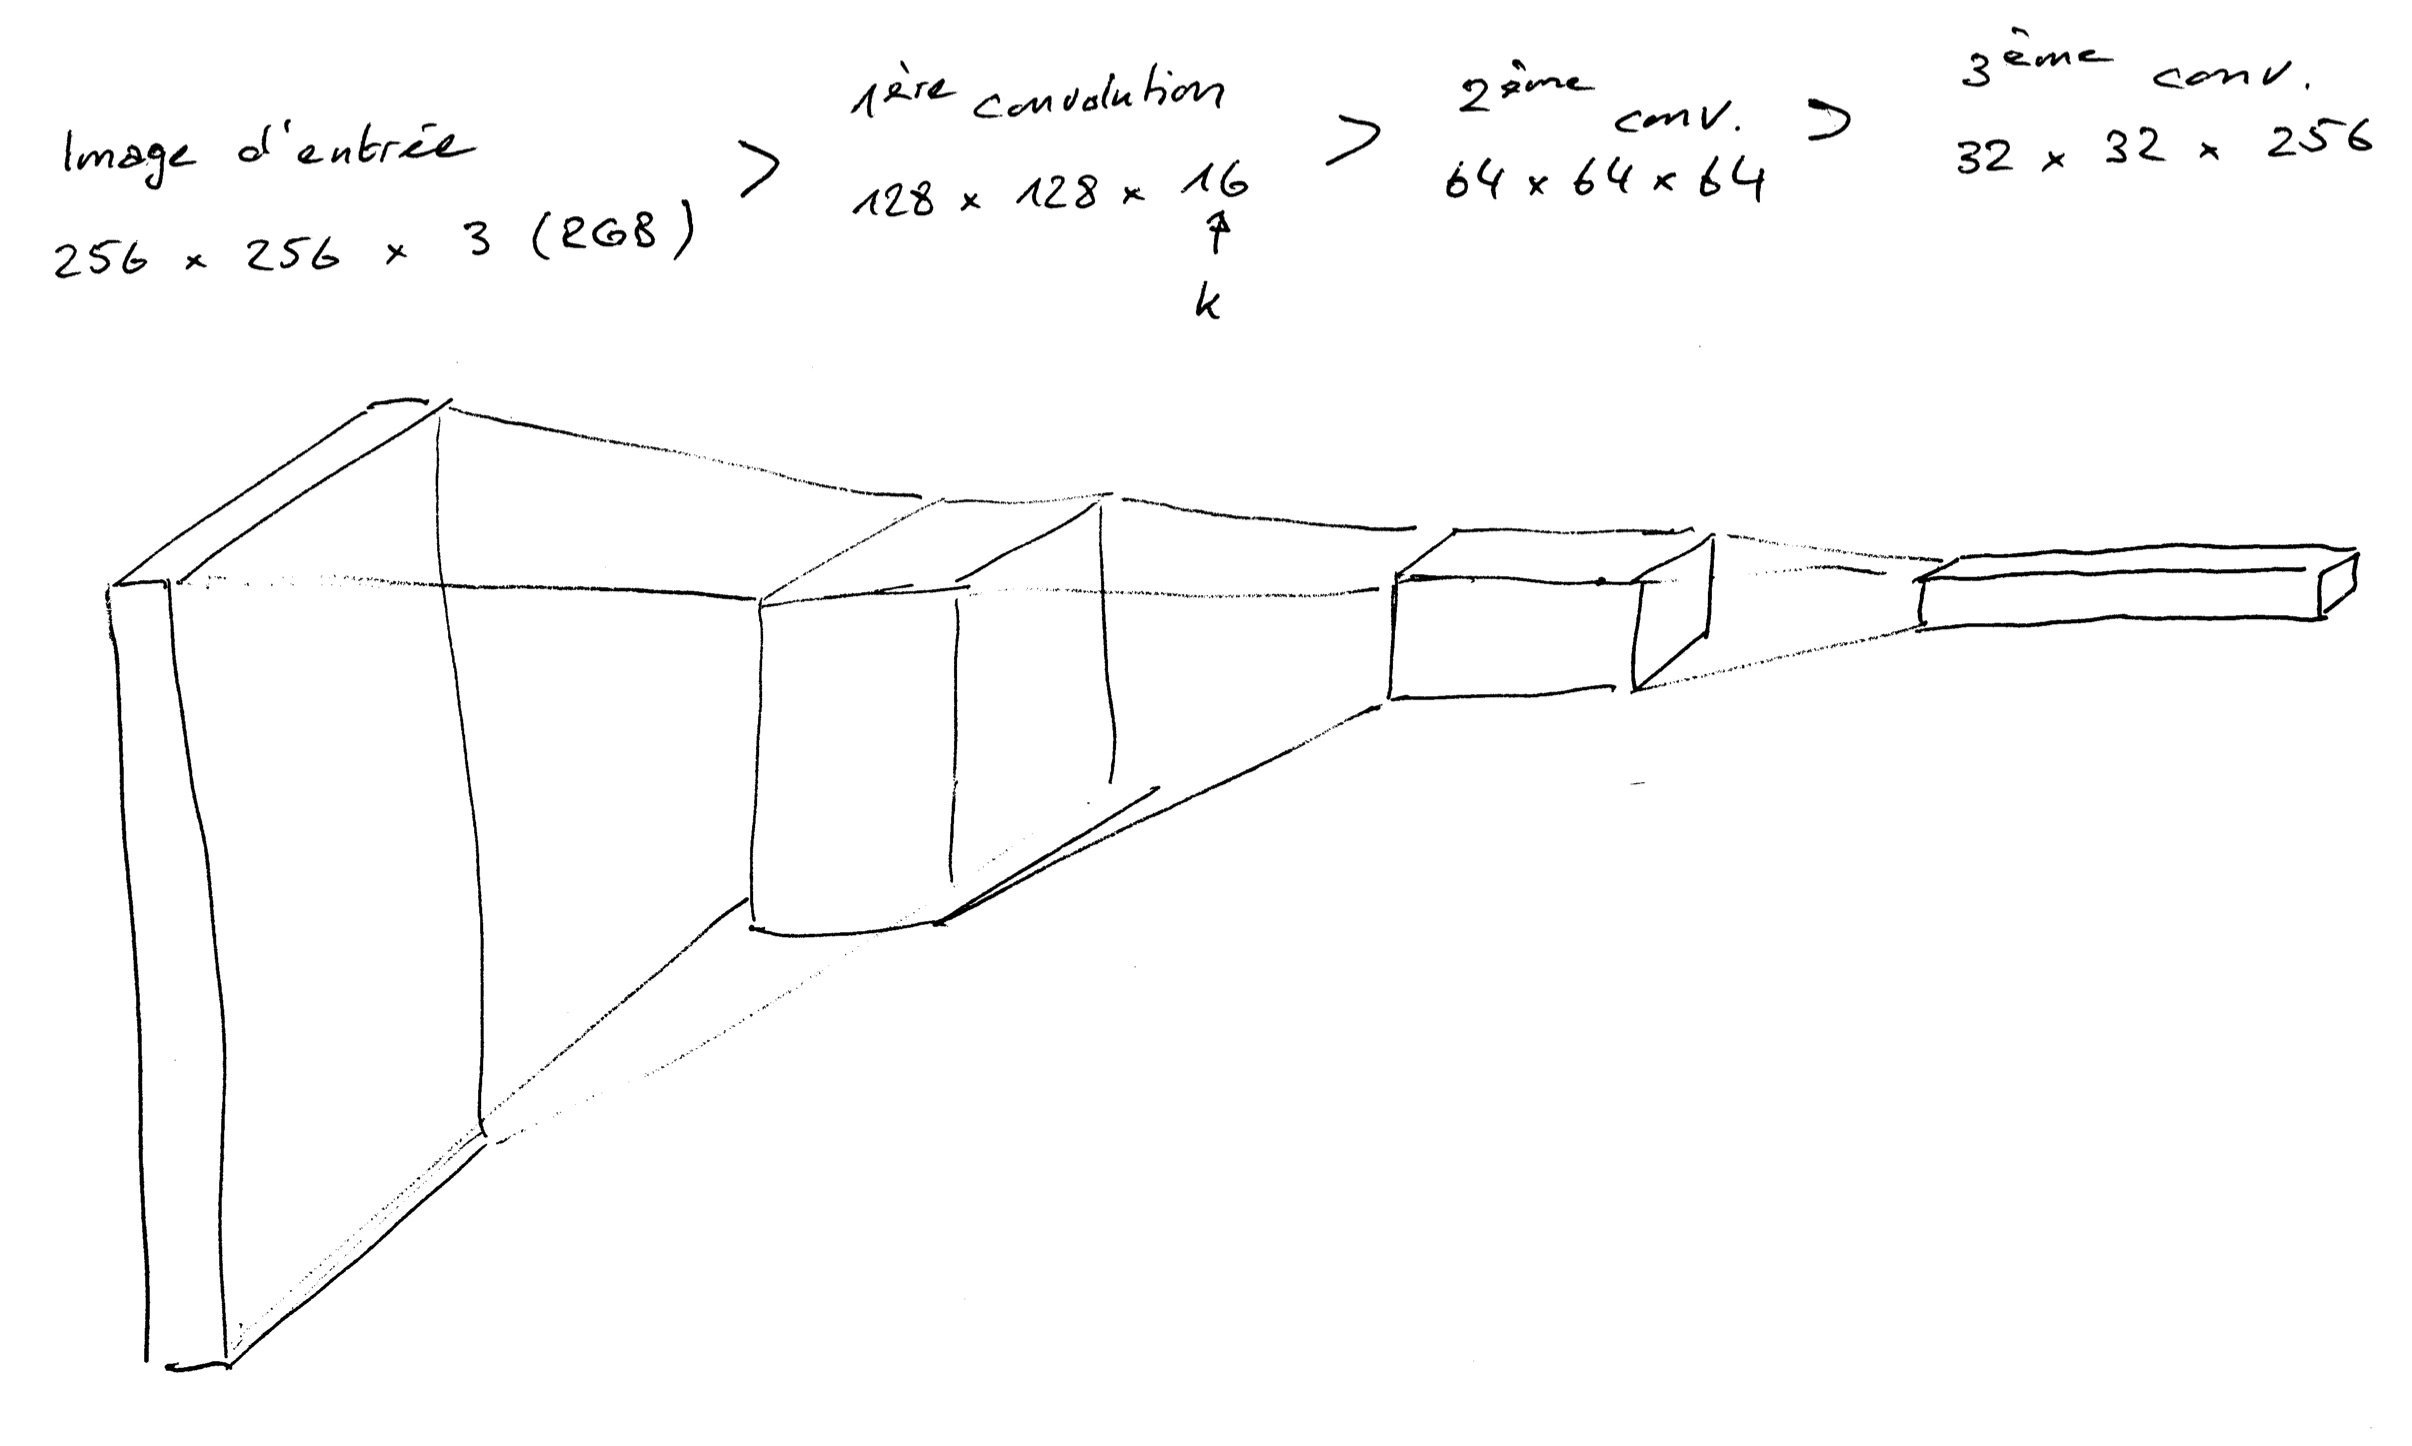 Image d'entrée
256 x 256 x 3 (RGB)
>
1ère convolution
128 x 128 x 16
↑
k
>
2ème conv.
64 x 64 x 64
>
3ème conv.
32 x 32 x 256